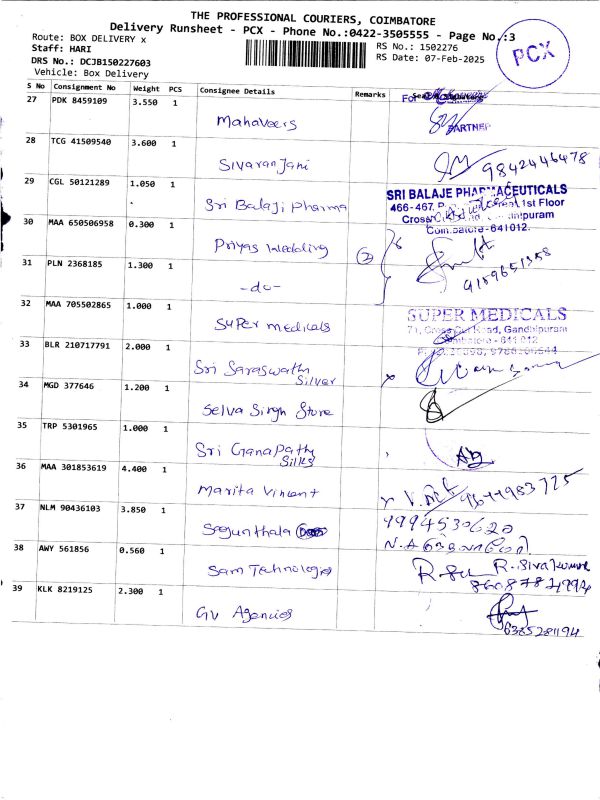 THE PROFESSIONAL COURIERS, COIMBATORE
Delivery Runsheet - PCX - Phone No.:0422-3505555 - Page No.:3
Route: BOX DELIVERY x
RS No.: 1502276
Staff: HARI
RS Date: 07-Feb-2025
DRS No.: DCJB150227603
Vehicle: Box Delivery
PCX
S No Consignment No Weight PCS Consignee Details Remarks
27 PDK 8459109 3.550 1 Mahaveers
For
PARTNER
28 TCG 41509540 3.600 1 Sivaranjani
9842446478
29 CGL 50121289 1.050 1 Sri Balaji Pharma
SRI BALAJE PHARMACEUTICALS
466-467, 1st Floor
Coimbatore-641012.
30 MAA 650506958 0.300 1 Priyas Wedding
2
31 PLN 2368185 1.300 1 -do-
9159651358
32 MAA 705502865 1.000 1 Super medicals
SUPER MEDICALS
71, Cross Cut Road, Gandhipuram
Coimbatore - 641 012
33 BLR 210717791 2.000 1 Sri Saraswathi Silver
34 MGD 377646 1.200 1 Selva Singh Store
35 TRP 5301965 1.000 1 Sri Ganapathy Silks
36 MAA 301853619 4.400 1 Marita Vincent
9644983725
37 NLM 90436103 3.850 1 Sagunthala
4994530620
38 AWY 561856 0.560 1 Sam Technologies
R. Sivakumar
39 KLK 8219125 2.300 1 GV Agencies
6385281194